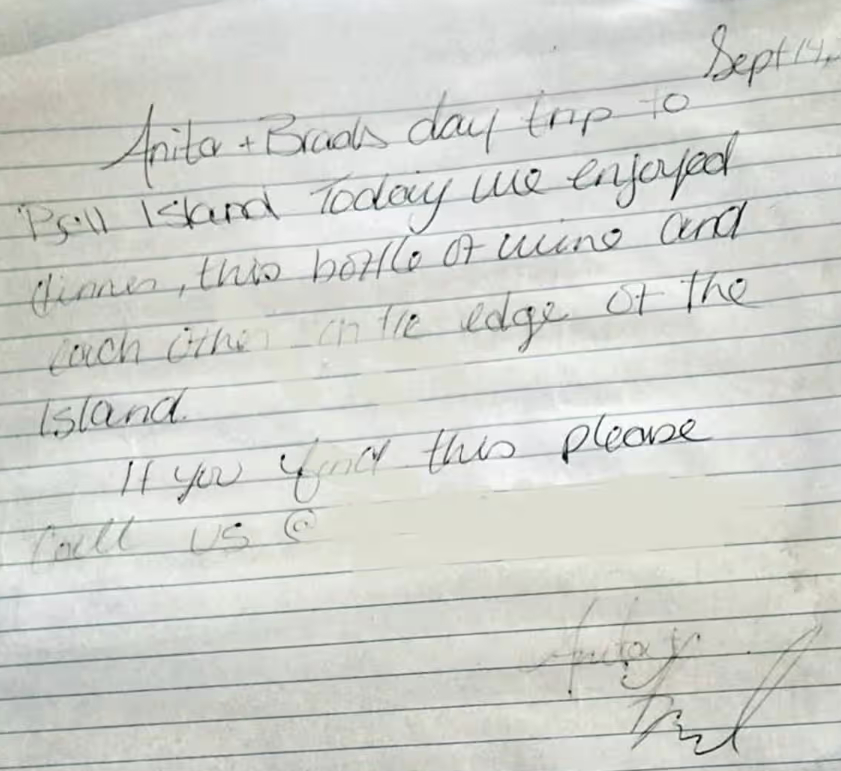 Sept 14,
Anita + Brads day trip to
Bell Island Today we enjoyed
dinner, this bottle of wine and
each other on the edge of the
Island.
If you find this please
Call us @
Anita &
Brad